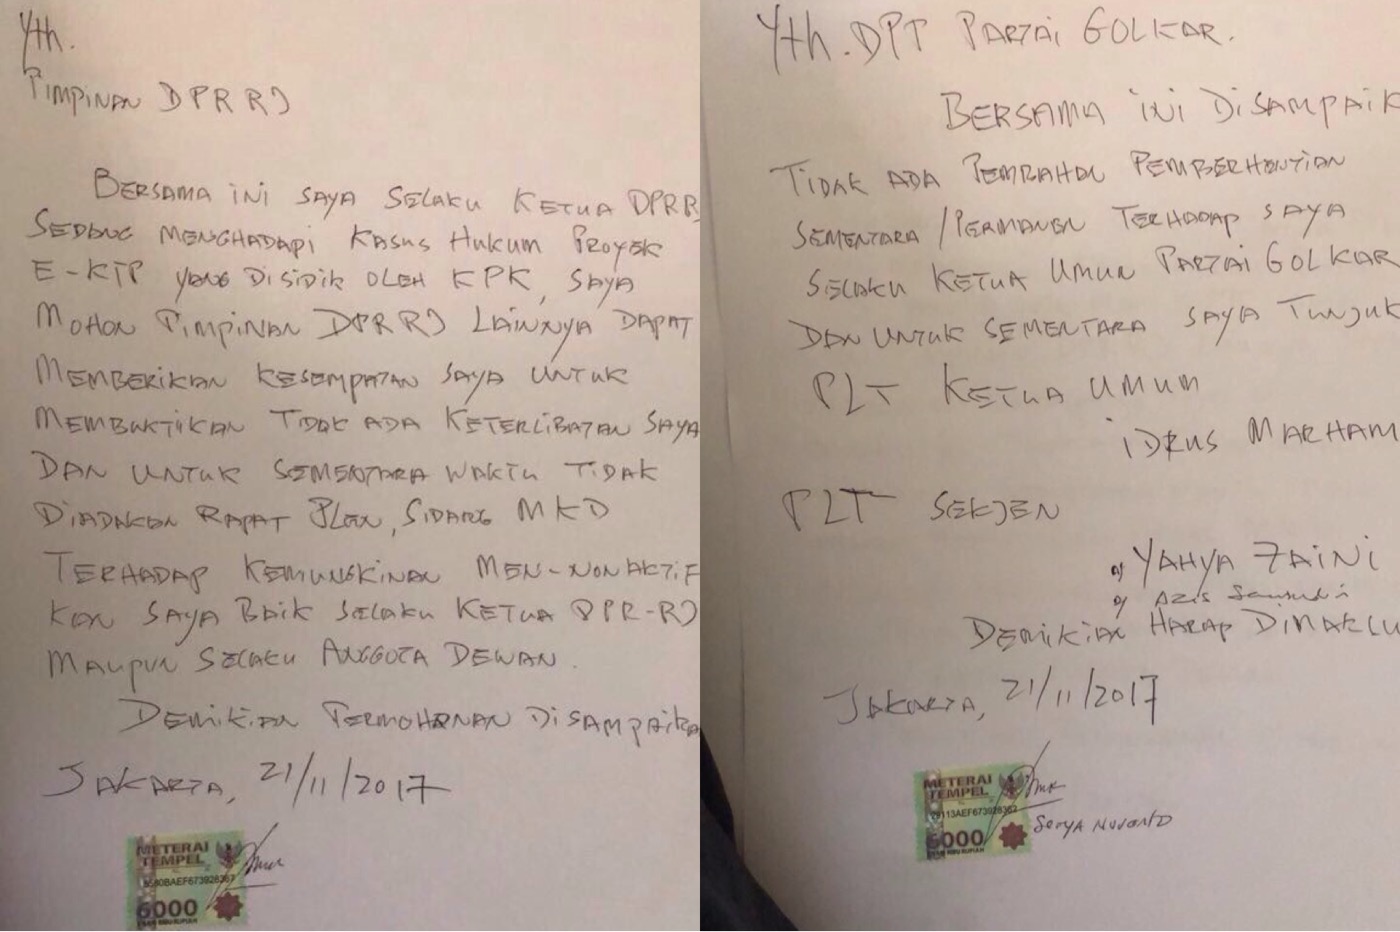 Yth.
PIMPINAN DPR RI
BERSAMA INI SAYA SELAKU KETUA DPR R
SEDANG MENGHADAPI KASUS HUKUM PROYEK
E-KTP YANG DISIDIK OLEH KPK, SAYA
MOHON PIMPINAN DPR RI LAINNYA DAPAT
MEMBERIKAN KESEMPATAN SAYA UNTUK
MEMBUKTIKAN TIDAK ADA KETERLIBATAN SAYA
DAN UNTUK SEMENTARA WAKTU TIDAK
DIADAKAN RAPAT PLENO, SIDANG MKD
TERHADAP KEMUNGKINAN MEN-NONAKTIF
KAN SAYA BAIK SELAKU KETUA DPR-RI
MAUPUN SELAKU ANGGOTA DEWAN.
DEMIKIAN PERMOHONAN DISAMPAIKA
JAKARTA, 21/11/2017
METERAI
TEMPEL
BAEF673928367
6000
ENAM RIBU RUPIAH
Yth. DPP PARTAI GOLKAR.
BERSAMA INI DISAMPAIK
TIDAK ADA PEMBAHAN PEMBERHENTIAN
SEMENTARA/PERMANEN TERHADAP SAYA
SELAKU KETUA UMUM PARTAI GOLKAR
DAN UNTUK SEMENTARA SAYA TUNJUK
PLT KETUA UMUM
IDRUS MARHAM
PLT SEKJEN
YAHYA ZAINI
AZIS Samsudin
DEMIKIAN HARAP DIMAKLU
JAKARTA, 21/11/2017
METERAI
TEMPEL
29113AEF673928362
6000
ENAM RIBU RUPIAH
SETYA NOVANTO